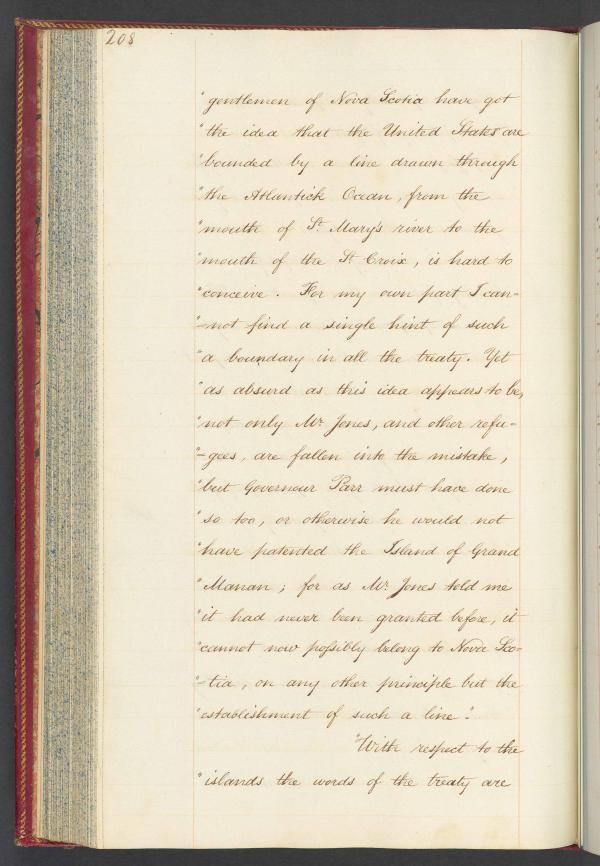 208
"gentlemen of Nova Scotia have got
"the idea that the United States are
"bounded by a line drawn through
"the Atlantick Ocean, from the
"mouth of St. Mary's river to the
"mouth of the St. Croix, is hard to
"conceive. For my own part I can-
"-not find a single hint of such
"a boundary in all the treaty. Yet
"as absurd as this idea appears to be,
"not only Mr. Jones, and other refu-
"-gees, are fallen into the mistake,
"but Governour Parr must have done
"so too, or otherwise he would not
"have patented the Island of Grand
"Manan; for as Mr. Jones told me
"it had never been granted before, it
"cannot now possibly belong to Nova Sco-
"-tia, on any other principle but the
"establishment of such a line."
"With respect to the
"islands the words of the treaty are